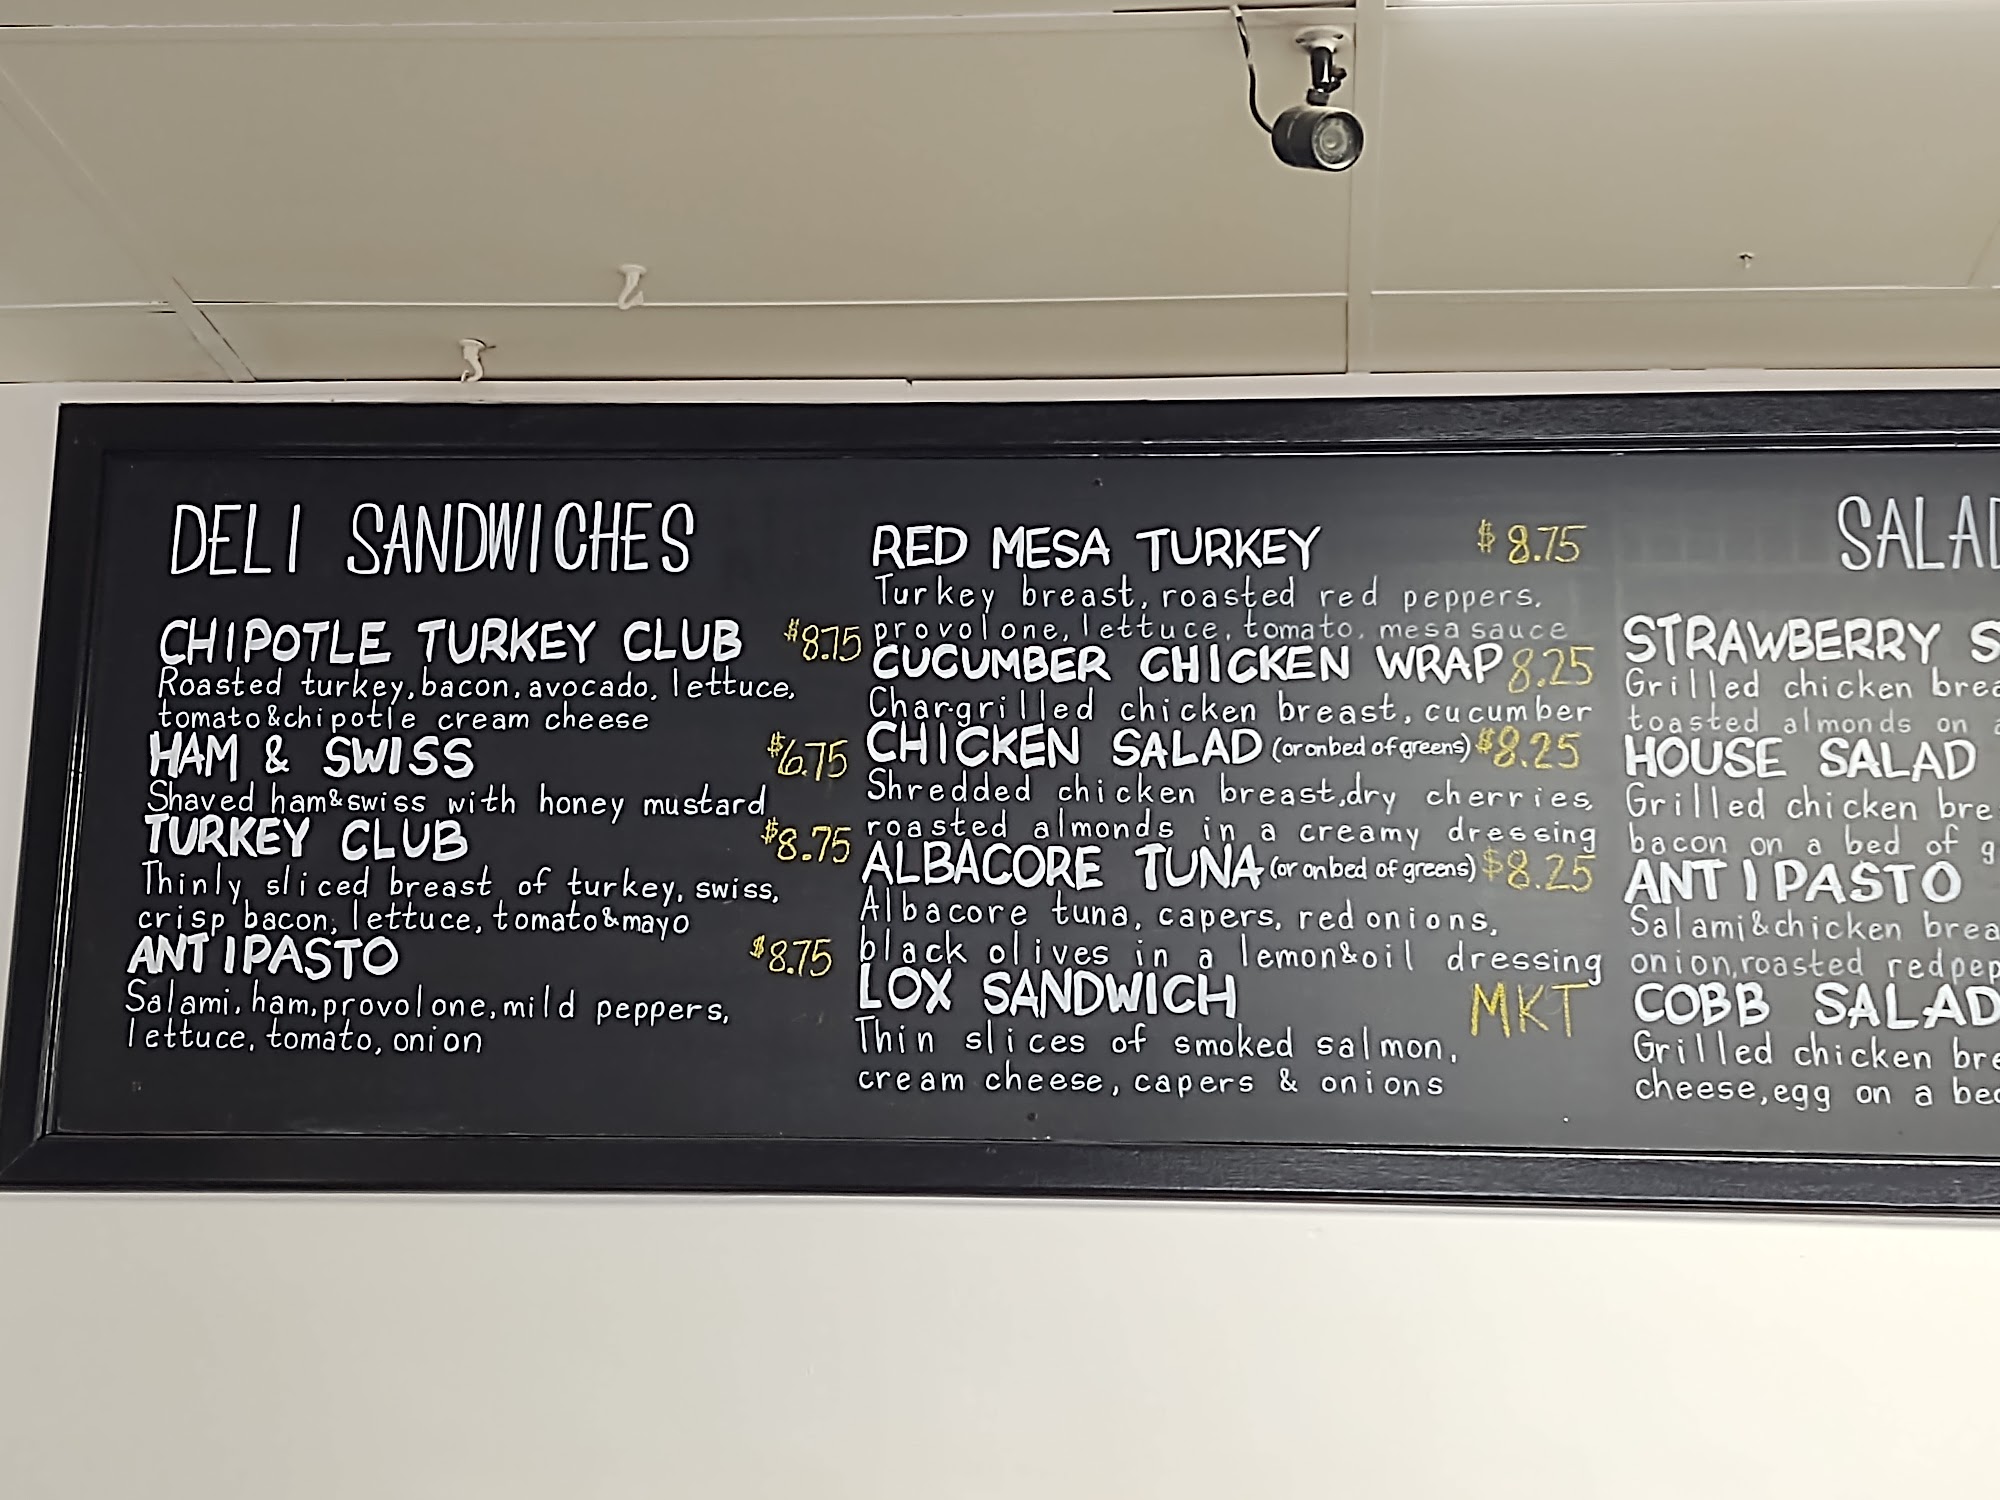 DELI SANDWICHES
CHIPOTLE TURKEY CLUB $8.75
Roasted turkey, bacon, avocado, lettuce,
tomato & chipotle cream cheese
HAM & SWISS $6.75
Shaved ham & swiss with honey mustard
TURKEY CLUB $8.75
Thinly sliced breast of turkey, swiss,
crisp bacon, lettuce, tomato & mayo
ANTIPASTO $8.75
Salami, ham, provolone, mild peppers,
lettuce, tomato, onion
RED MESA TURKEY $8.75
Turkey breast, roasted red peppers,
provolone, lettuce, tomato, mesa sauce
CUCUMBER CHICKEN WRAP 8.25
Chargrilled chicken breast, cucumber
CHICKEN SALAD (or on bed of greens) $8.25
Shredded chicken breast, dry cherries,
roasted almonds in a creamy dressing
ALBACORE TUNA (or on bed of greens) $8.25
Albacore tuna, capers, red onions,
black olives in a lemon & oil dressing
LOX SANDWICH MKT
Thin slices of smoked salmon,
cream cheese, capers & onions
STRAWBERRY
Grilled chicken
toasted almonds on
HOUSE SALAD
Grilled chicken
bacon on a bed of
ANTIPASTO
Salami & chicken
onion, roasted red
COBB SALAD
Grilled chicken
cheese, egg on a